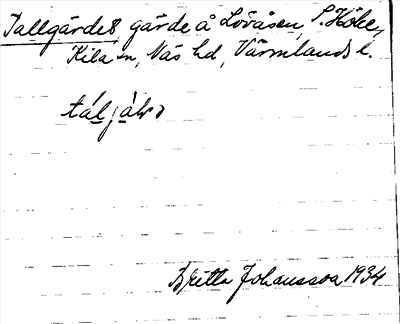 Tallgärdet, gärde å Lövåsen, S. Höken,
Kila sn, Näs hd, Värmlands l.
Britta Johansson 1934